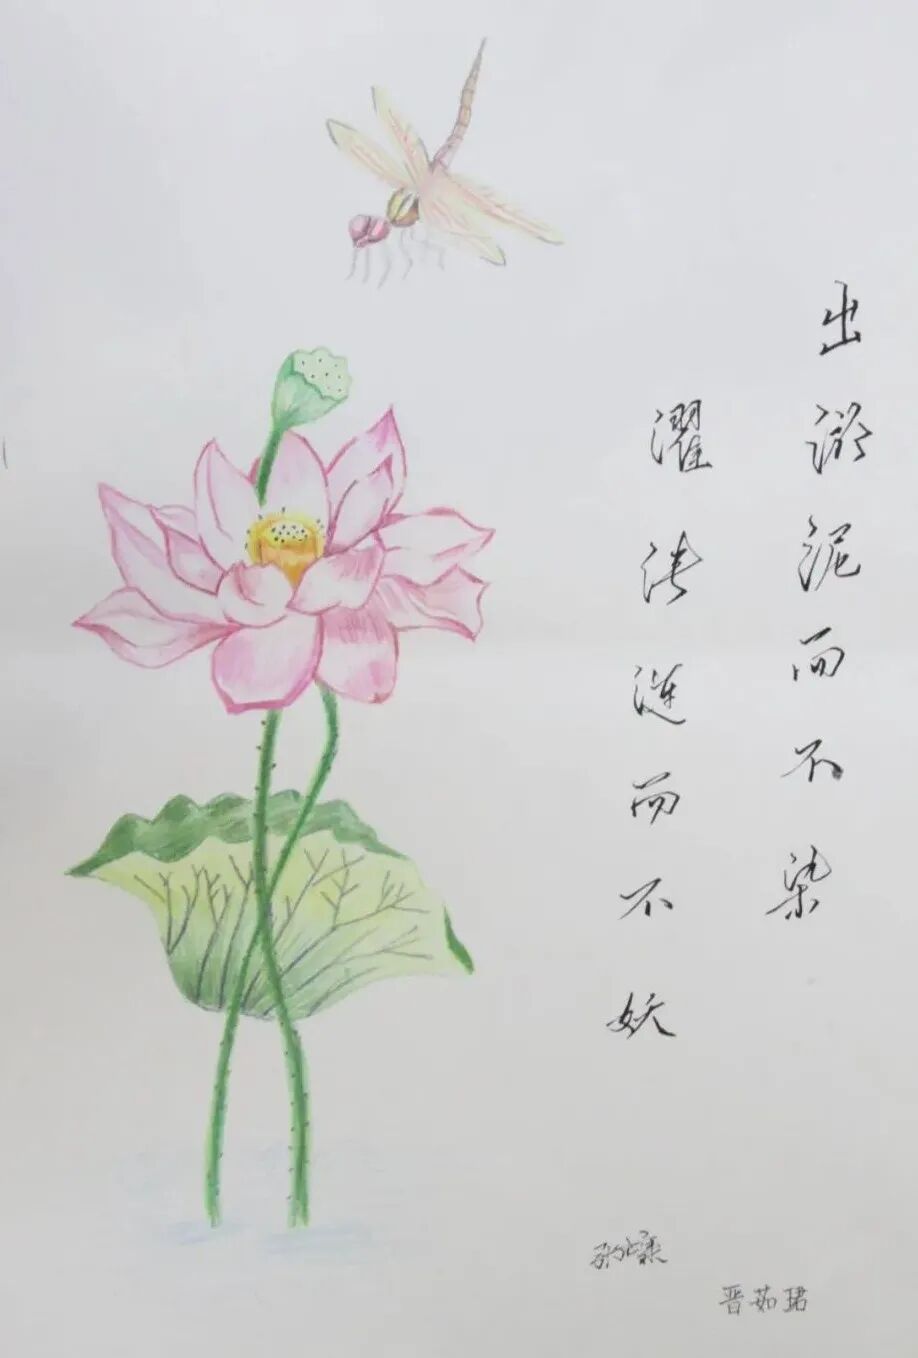 出淤泥而不染
濯清涟而不妖
晋茹珺